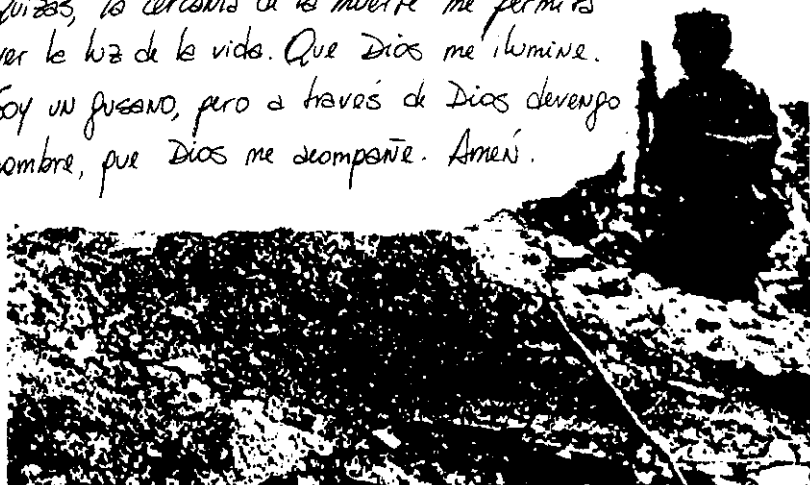 quizás, la cercanía de la muerte me permita
ver la luz de la vida. Que Dios me ilumine.
Soy un gusano, pero a través de Dios devengo
hombre, que Dios me acompañe. Amén.